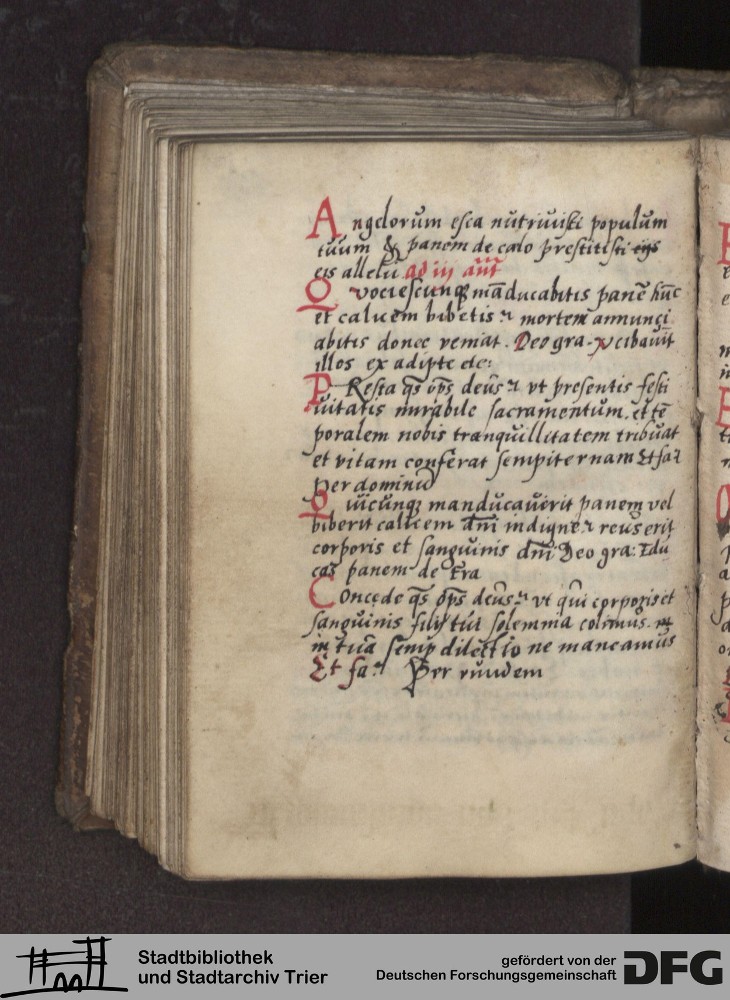 Angelorum esca nutriuisti populum
tuum & panem de celo prestitisti eijs
eis alleluia ad iij ant
Quociescunq manducabitis pane hunc
et calicem bibetis mortem annunci
abitis donec veniat. Deo gra. cibauit
illos ex adipte etc:
PResta qs ops deus vt presentis festi
uitatis mirabile sacramentum. et te
poralem nobis tranquillitatem tribuat
et vitam conferat sempiternam Et fa
Per dominu
Quicunq manducauerit panem vel
biberit calicem dni indigne reus erit
corporis et sanguinis dni Deo gra: Edu
cas panem de tra
Concede qs ops deus vt qui corporis et
sanguinis filij tui solemnia colimus.
in tua semp dilectio ne maneamus
Et fa Per eundem
Stadtbibliothek
und Stadtarchiv Trier
gefördert von der
Deutschen Forschungsgemeinschaft
DFG